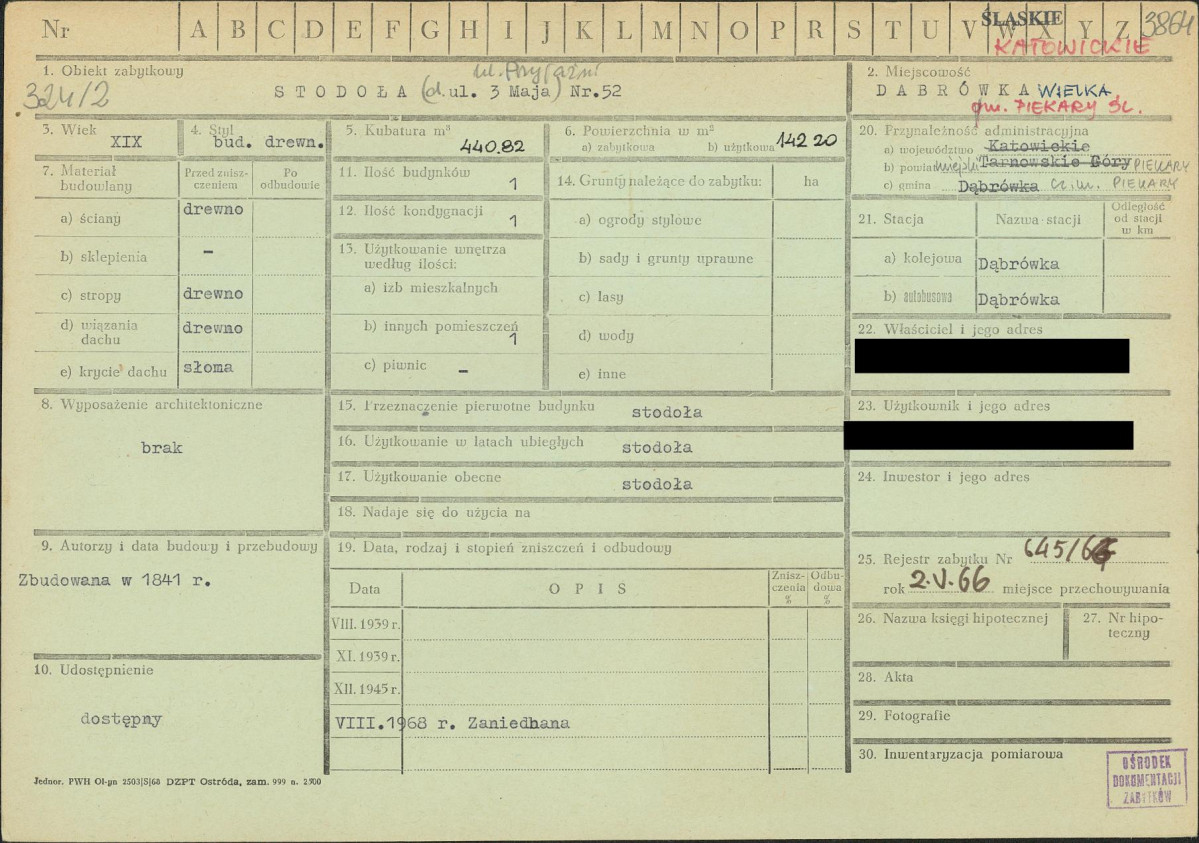 Nr A B C D E F G H I J K L M N O P R S T U V W X Y Z
ŚLĄSKIE 3864
KATOWICKIE
1. Obiekt zabytkowy
ul. Przyjaźni
STODOŁA (d. ul. 3 Maja) Nr.52
324/2
2. Miejscowość
DĄBRÓWKA WIELKA
gm. PIEKARY ŚL.
3. Wiek
XIX
4. Styl
bud. drewn.
5. Kubatura m³
440.82
6. Powierzchnia w m²
a) zabytkowa b) użytkowa 142 20
7. Materiał budowlany
Przed zniszczeniem
Po odbudowie
a) ściany drewno
b) sklepienia -
c) stropy drewno
d) wiązania dachu drewno
e) krycie dachu słoma
8. Wyposażenie architektoniczne
brak
9. Autorzy i data budowy i przebudowy
Zbudowana w 1841 r.
10. Udostępnienie
dostępny
11. Ilość budynków 1
12. Ilość kondygnacji 1
13. Użytkowanie wnętrza według ilości:
a) izb mieszkalnych
b) innych pomieszczeń 1
c) piwnic -
14. Grunty należące do zabytku: ha
a) ogrody stylowe
b) sady i grunty uprawne
c) lasy
d) wody
e) inne
15. Przeznaczenie pierwotne budynku stodoła
16. Użytkowanie w latach ubiegłych stodoła
17. Użytkowanie obecne stodoła
18. Nadaje się do użycia na
19. Data, rodzaj i stopień zniszczeń i odbudowy
Data OPIS Zniszczenia % Odbudowa %
VIII. 1939 r.
XI. 1939 r.
XII. 1945 r.
VIII.1968 r. Zaniedbana
20. Przynależność administracyjna
a) województwo Katowickie
b) powiat miejski Tarnowskie Góry PIEKARY
c) gmina Dąbrówka PIEKARY
21. Stacja Nazwa stacji Odległość od stacji w km
a) kolejowa Dąbrówka
b) autobusowa Dąbrówka
22. Właściciel i jego adres
23. Użytkownik i jego adres
24. Inwestor i jego adres
25. Rejestr zabytku Nr 645/66
rok 2.V.66 miejsce przechowywania
26. Nazwa księgi hipotecznej
27. Nr hipoteczny
28. Akta
29. Fotografie
30. Inwentaryzacja pomiarowa
OŚRODEK
DOKUMENTACJI
ZABYTKÓW
Jednor. PWH Ol-yn 2503|S|68 DZPT Ostróda, zam. 999 n. 2500